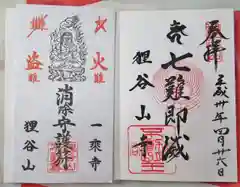 奉拝
平成卅年四月廿六日
七難即滅
狸谷山寺
火難
盗難
消除守護
一乗寺
狸谷山